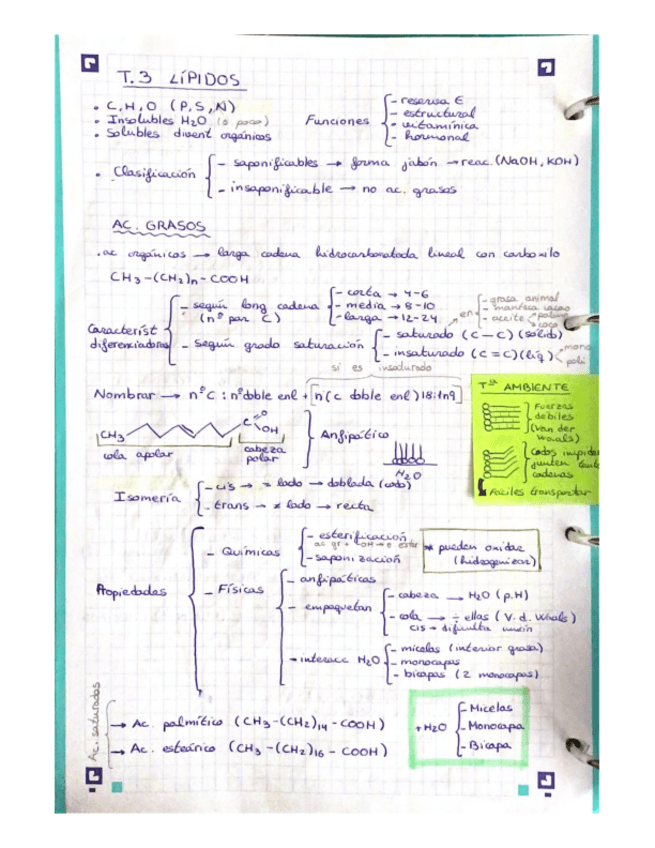 T.3 LÍPIDOS
• C,H,O (P,S,N)
• Insolubles H2O (ó poco)
• Solubles disvent orgánicos
Funciones
- reserva E
- estructural
- vitamínica
- hormonal
• Clasificación
- saponificables → forma jabón → reac. (NaOH, KOH)
- insaponificable → no ac. grasos
AC. GRASOS
• ac orgánicos → larga cadena hidrocarbonatada lineal con carboxilo
CH3-(CH2)n-COOH
Característ diferenciadoras
- según long cadena (nº par C)
- corta → 4-6
- media → 8-10
- larga → 12-24
en
- grasa animal
- manteca cacao
- aceite
palma
coco
- según grado saturación
- saturado (C-C) (sólido)
- insaturado (C=C) (líq)
mono
poli
si es insaturado
Nombrar → nºC : nºdoble enl + n(c doble enl) 18:1n9
CH3
C
O
OH
cola apolar
cabeza polar
Anfipático
H2O
Tª AMBIENTE
Fuerzas
débiles
(Van der
Waals)
Codos impiden
junten
cadenas
Fáciles transportar
Isomería
- cis → = lado → doblada (codo)
- trans → ≠ lado → recta
Propiedades
- Químicas
- esterificación
- saponización
* pueden oxidar
(hidrogenizar)
- Físicas
- anfipáticas
- empaquetan
- cabeza → H2O (p.H)
- cola → ÷ ellas (V.d. Whals)
cis → dificulta unión
- interacc H2O
- micelas (interior grasa)
- monocapas
- bicapas (2 monocapas)
Ac. saturados
→ Ac. palmítico (CH3-(CH2)14-COOH)
→ Ac. esteárico (CH3-(CH2)16-COOH)
+H2O
- Micelas
- Monocapa
- Bicapa